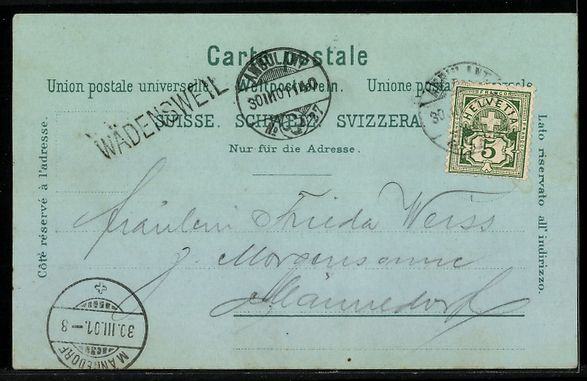 Carte postale
Union postale universelle. Weltpostverein. Unione postale
SUISSE. SCHWEIZ. SVIZZERA.
Nur für die Adresse.
Côté réservé à l'adresse.
Lato riservato all' indirizzo.
WÄDENSWEIL
AMBULANT
30 III 01
No
HELVETIA
5
AMBULANT
30
Fräulein Frieda Weiss
z. Morgensonne
Männedorf
30.III.01.-8
MÄNNEDORF